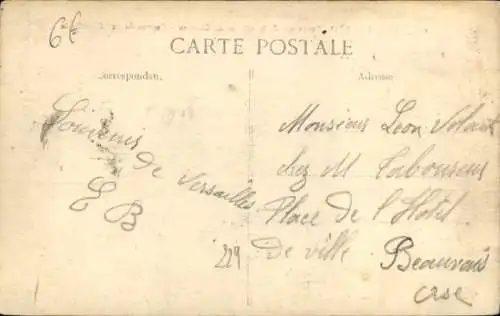 6€
CARTE POSTALE
Correspondan.
Adresse
Souvenir
de Versailles
E B
229
Monsieur Leon
chez M
Place de l'Hotel
De ville
Beauvais
Oise